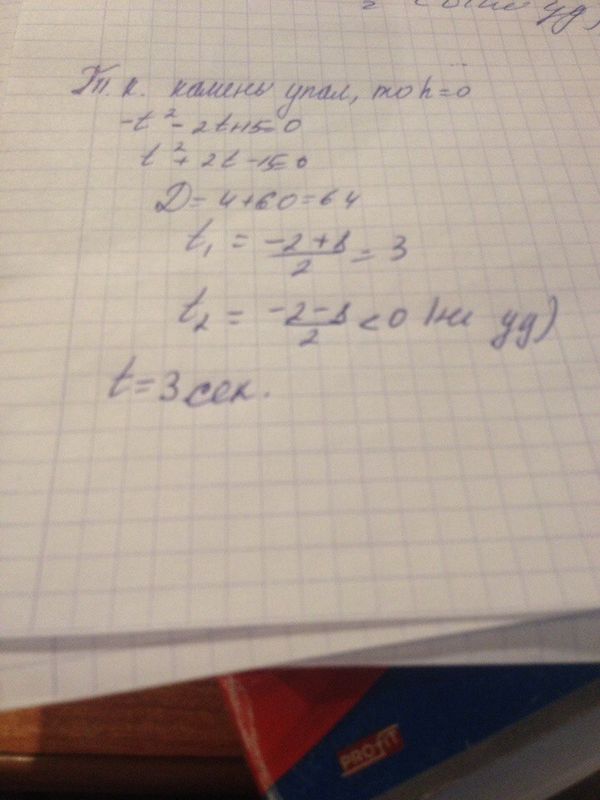 Т.к. камень упал, то h=0
-t² - 2t+15=0
t² + 2t - 15=0
D= 4+60=64
t₁ = (-2+8)/2 = 3
t₂ = (-2-8)/2 < 0 (не уд)
t=3 сек.
PROFIT